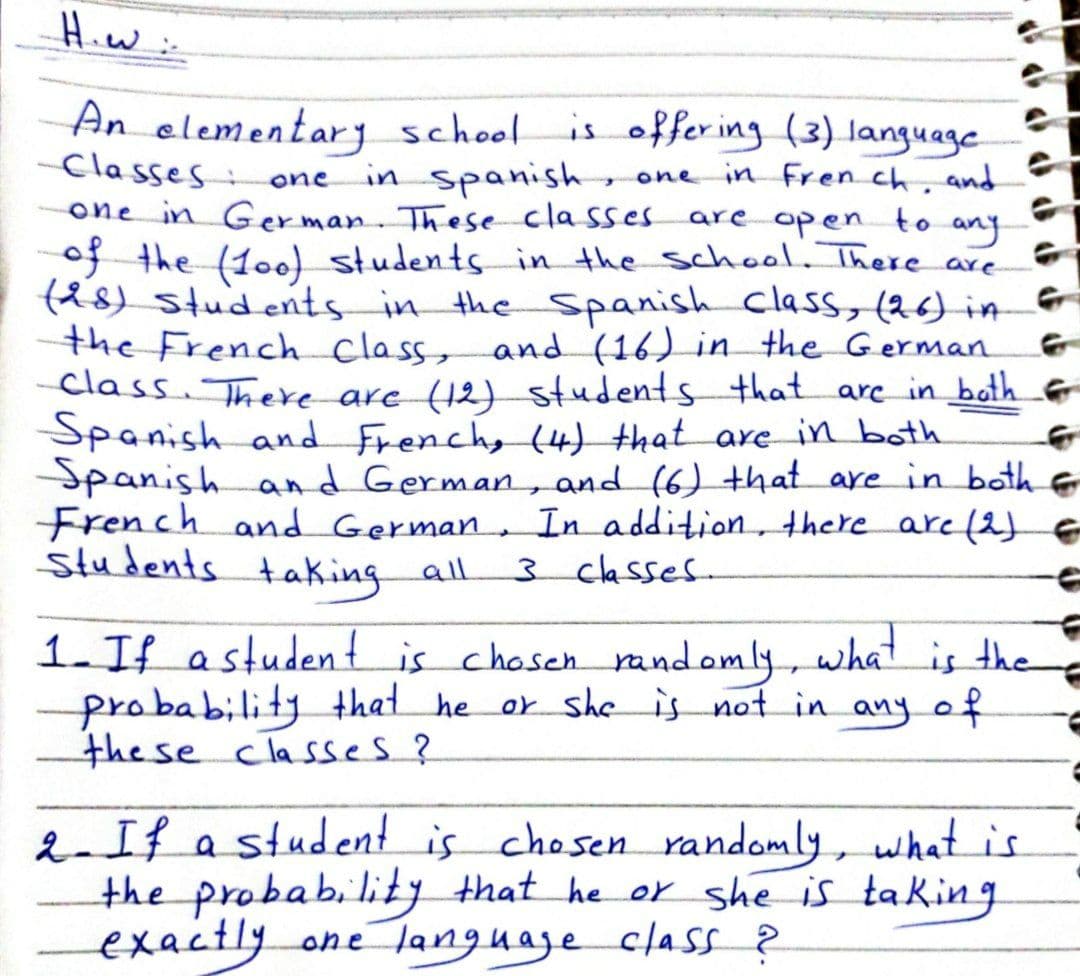 H.w :-
An elementary school is offering (3) language
Classes : one in spanish, one in French, and
one in German. These classes are open to any
of the (100) students in the school. There are
(28) students in the Spanish class, (26) in
the French class, and (16) in the German
class. There are (12) students that are in both
Spanish and French, (4) that are in both
Spanish and German, and (6) that are in both
French and German. In addition, there are (2)
students taking all 3 classes.
1- If a student is chosen randomly, what is the
probability that he or she is not in any of
these classes ?
2- If a student is chosen randomly, what is
the probability that he or she is taking
exactly one language class ?